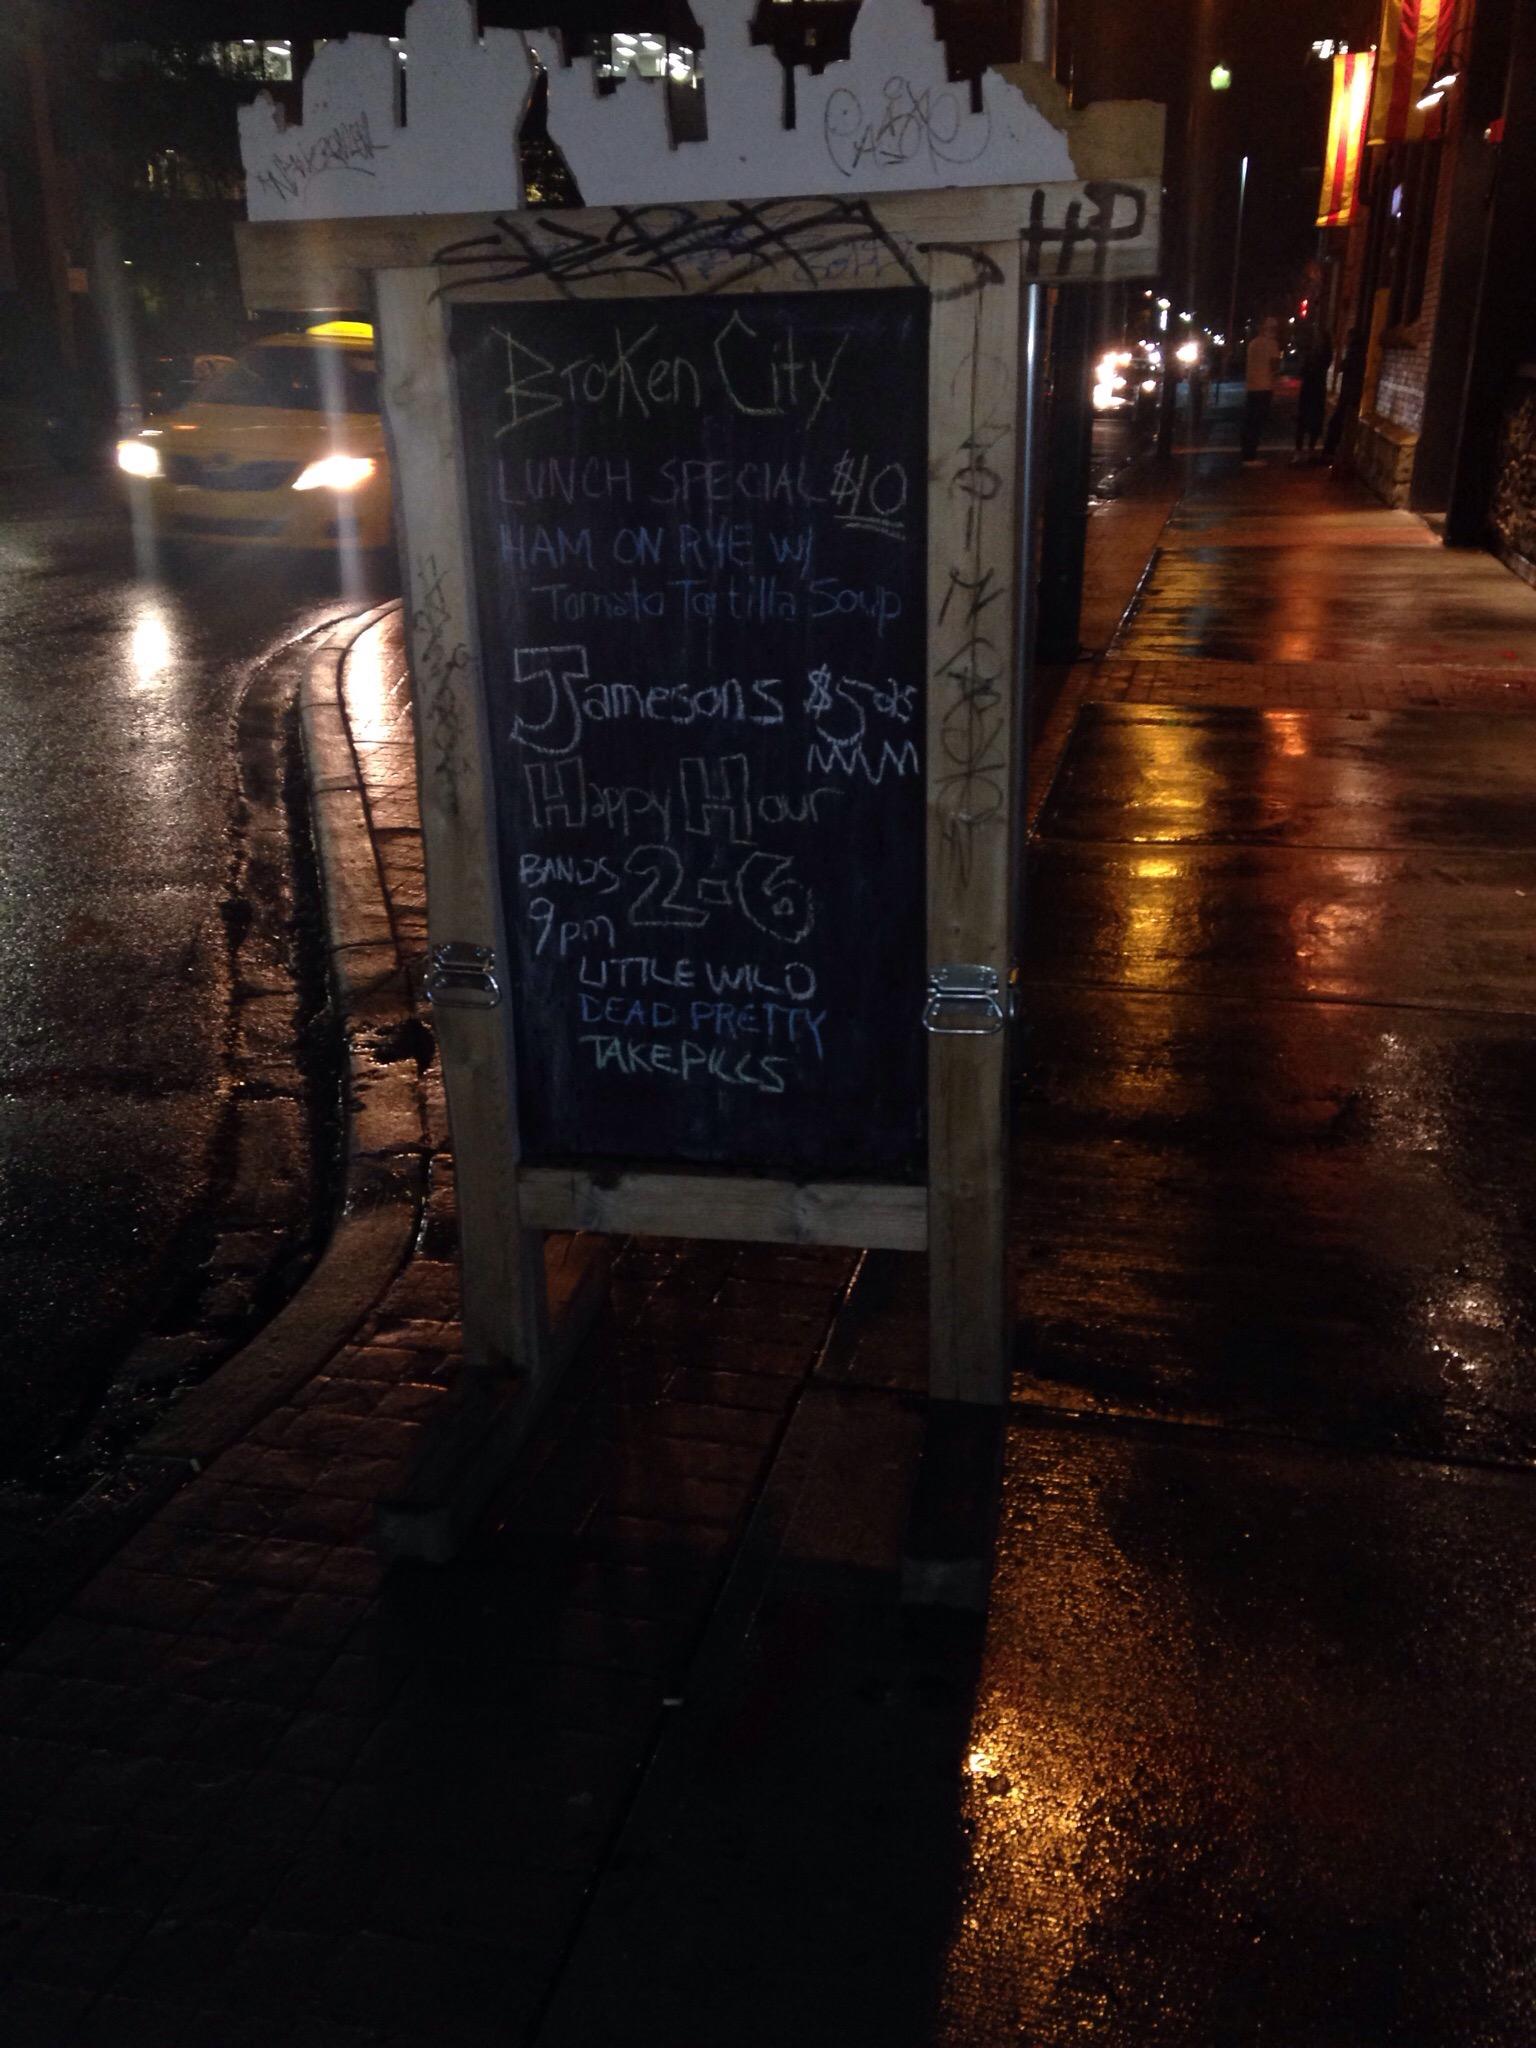 HP
Broken City
LUNCH SPECIAL $10
HAM ON RYE W/
Tomato Tortilla Soup
Jamesons $5
Happy Hour
BANDS 2-6
9pm
LITTLE WILD
DEAD PRETTY
TAKE PILLS